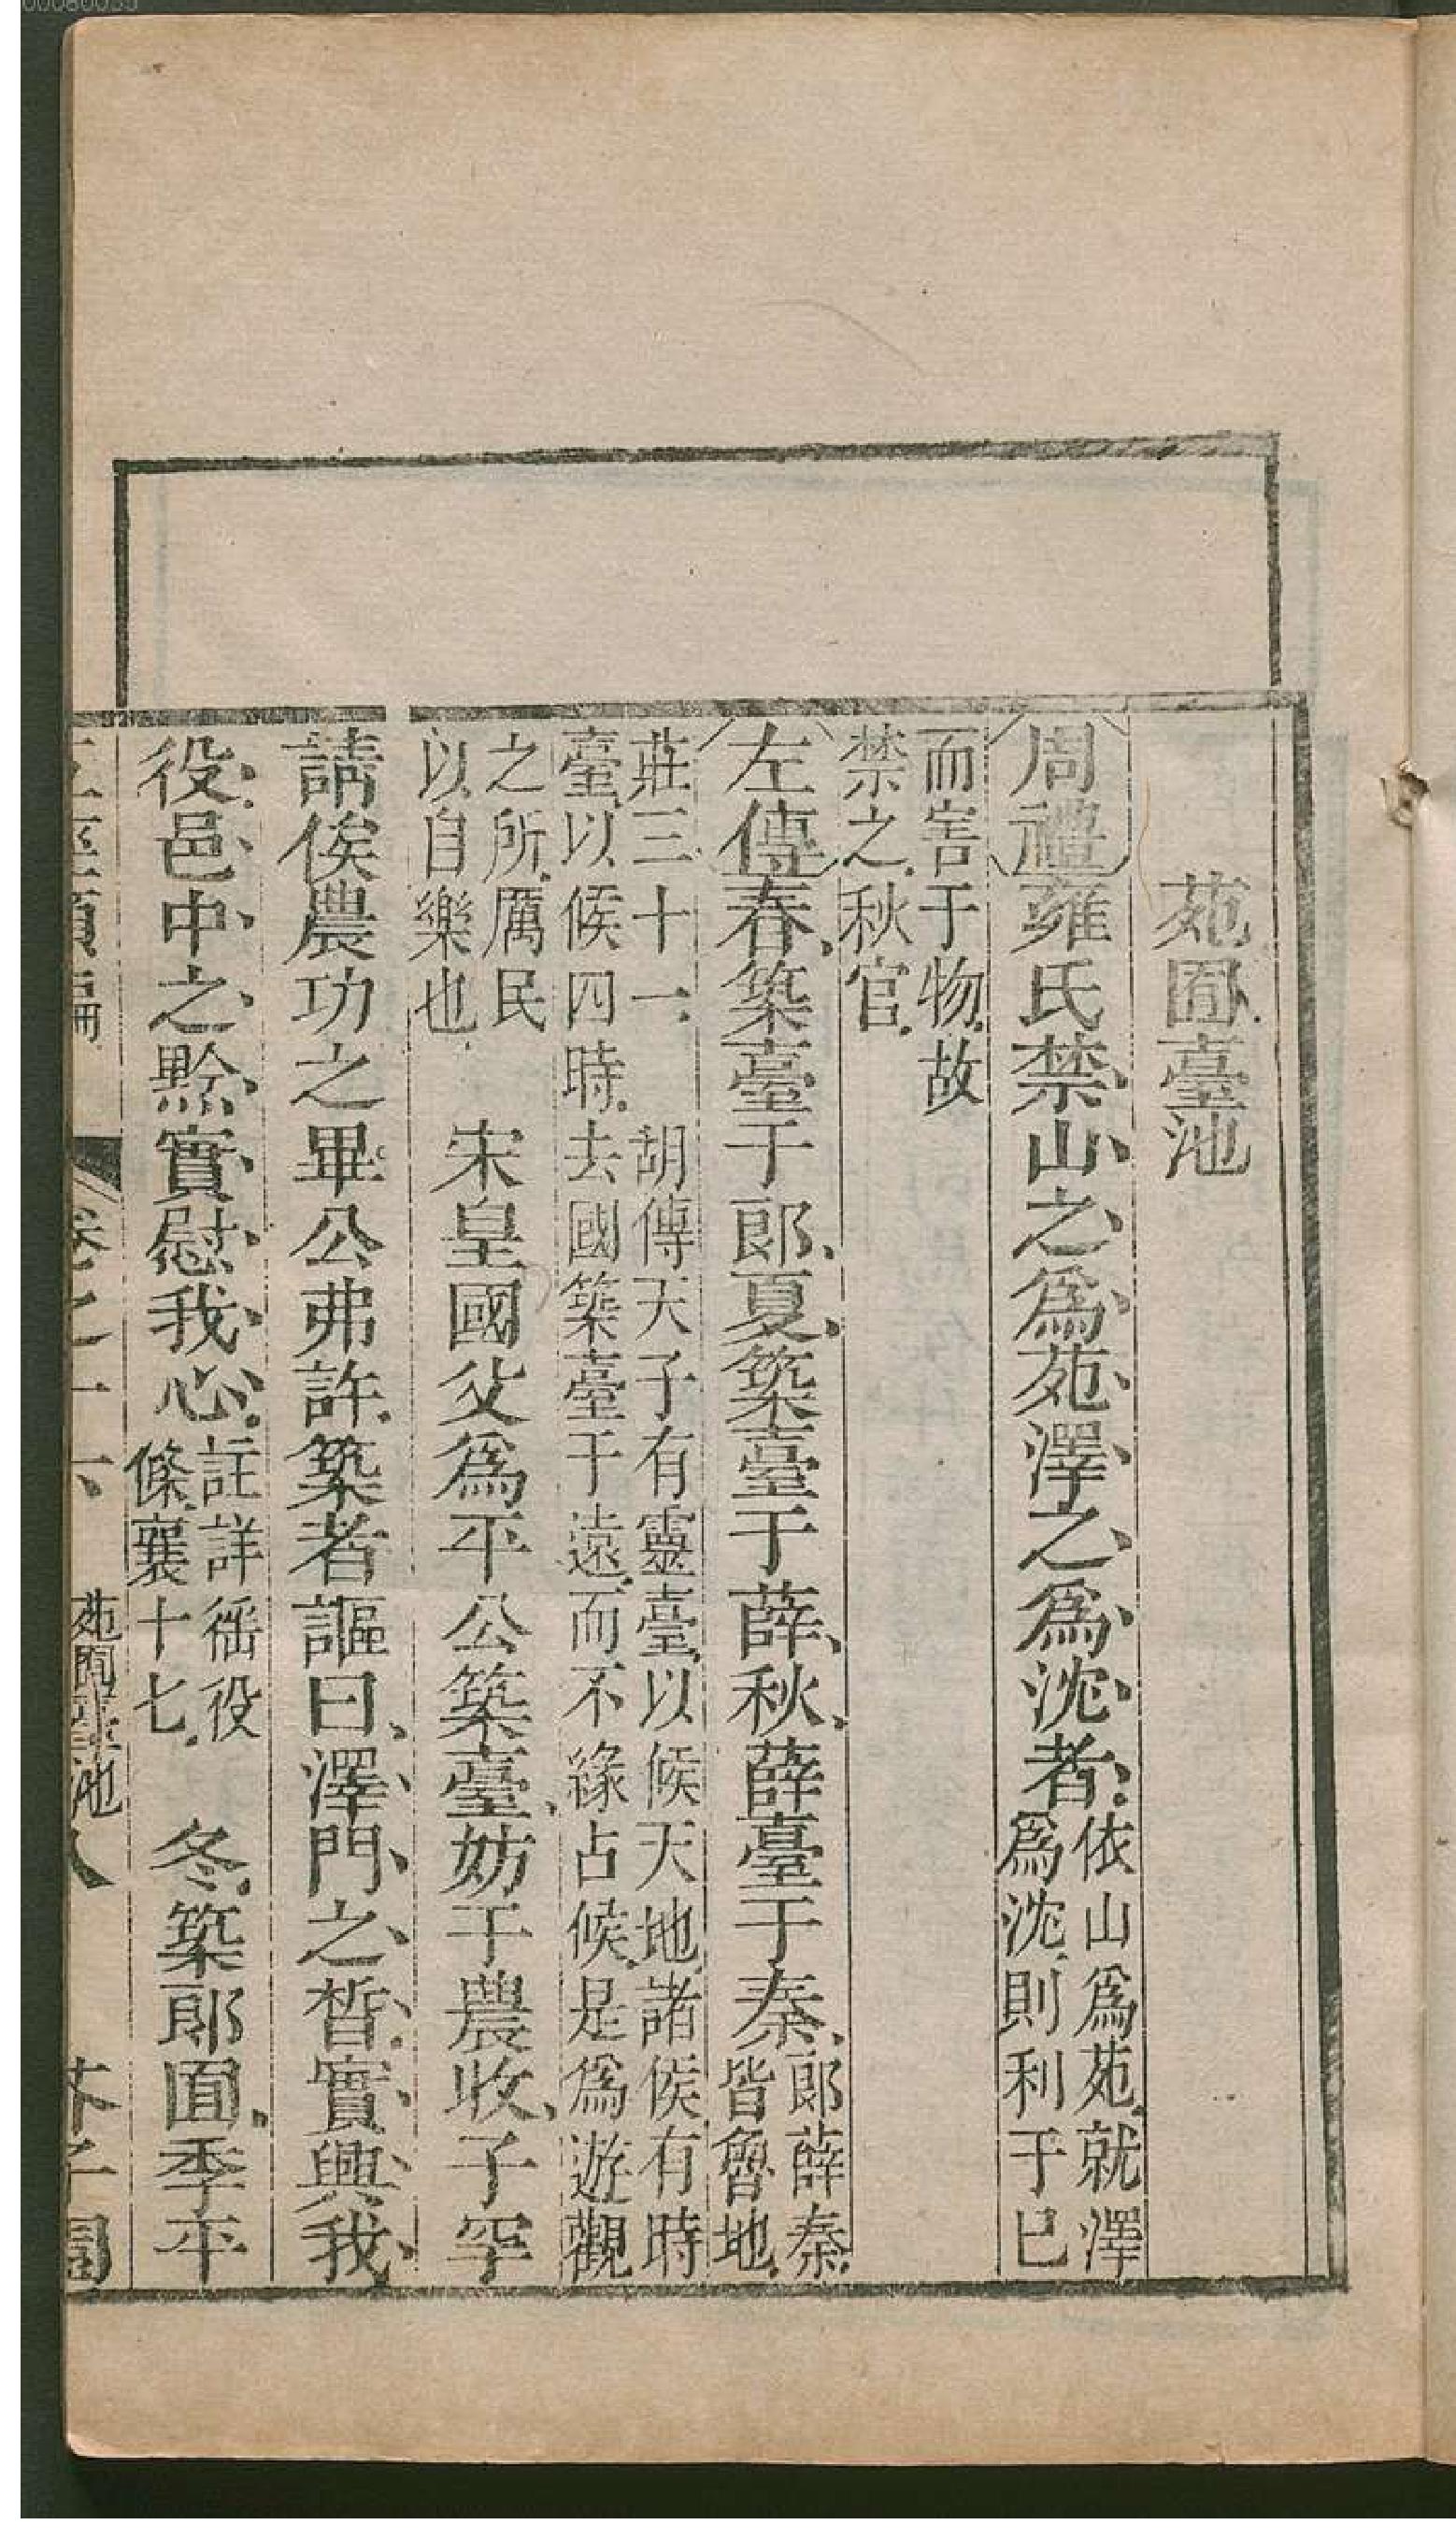 苑囿臺池
周禮雍氏禁山之爲苑澤之爲沈者依山爲苑就澤爲沈則利于已
而害于物故禁之秋官
左傳春築臺于郎夏築臺于薛秋薛臺于秦郎薛秦皆魯地
莊三十一胡傳天子有靈臺以候天地諸侯有時臺以候四時去國築臺于遠而不緣占候是爲遊觀
之所厲民以自樂也宋皇國父爲平公築臺妨于農收子罕
請俟農功之畢公弗許築者謳曰澤門之晳實興我
役邑中之黔實慰我心註詳徭役條襄十七冬築郎囿季平
卷之十六 苑囿臺池 八